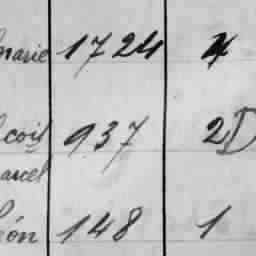 marie 1724 4
coil 937 2D
arcel
éon 148 1